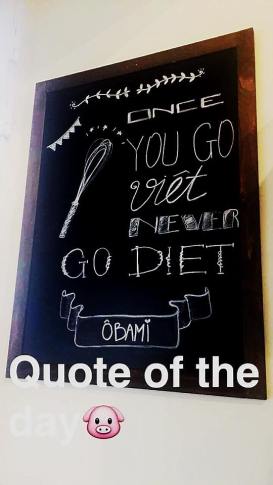 ONCE
YOU GO
việt
NEVER
GO DIET
ÔBAMÌ
Quote of the
day🐷